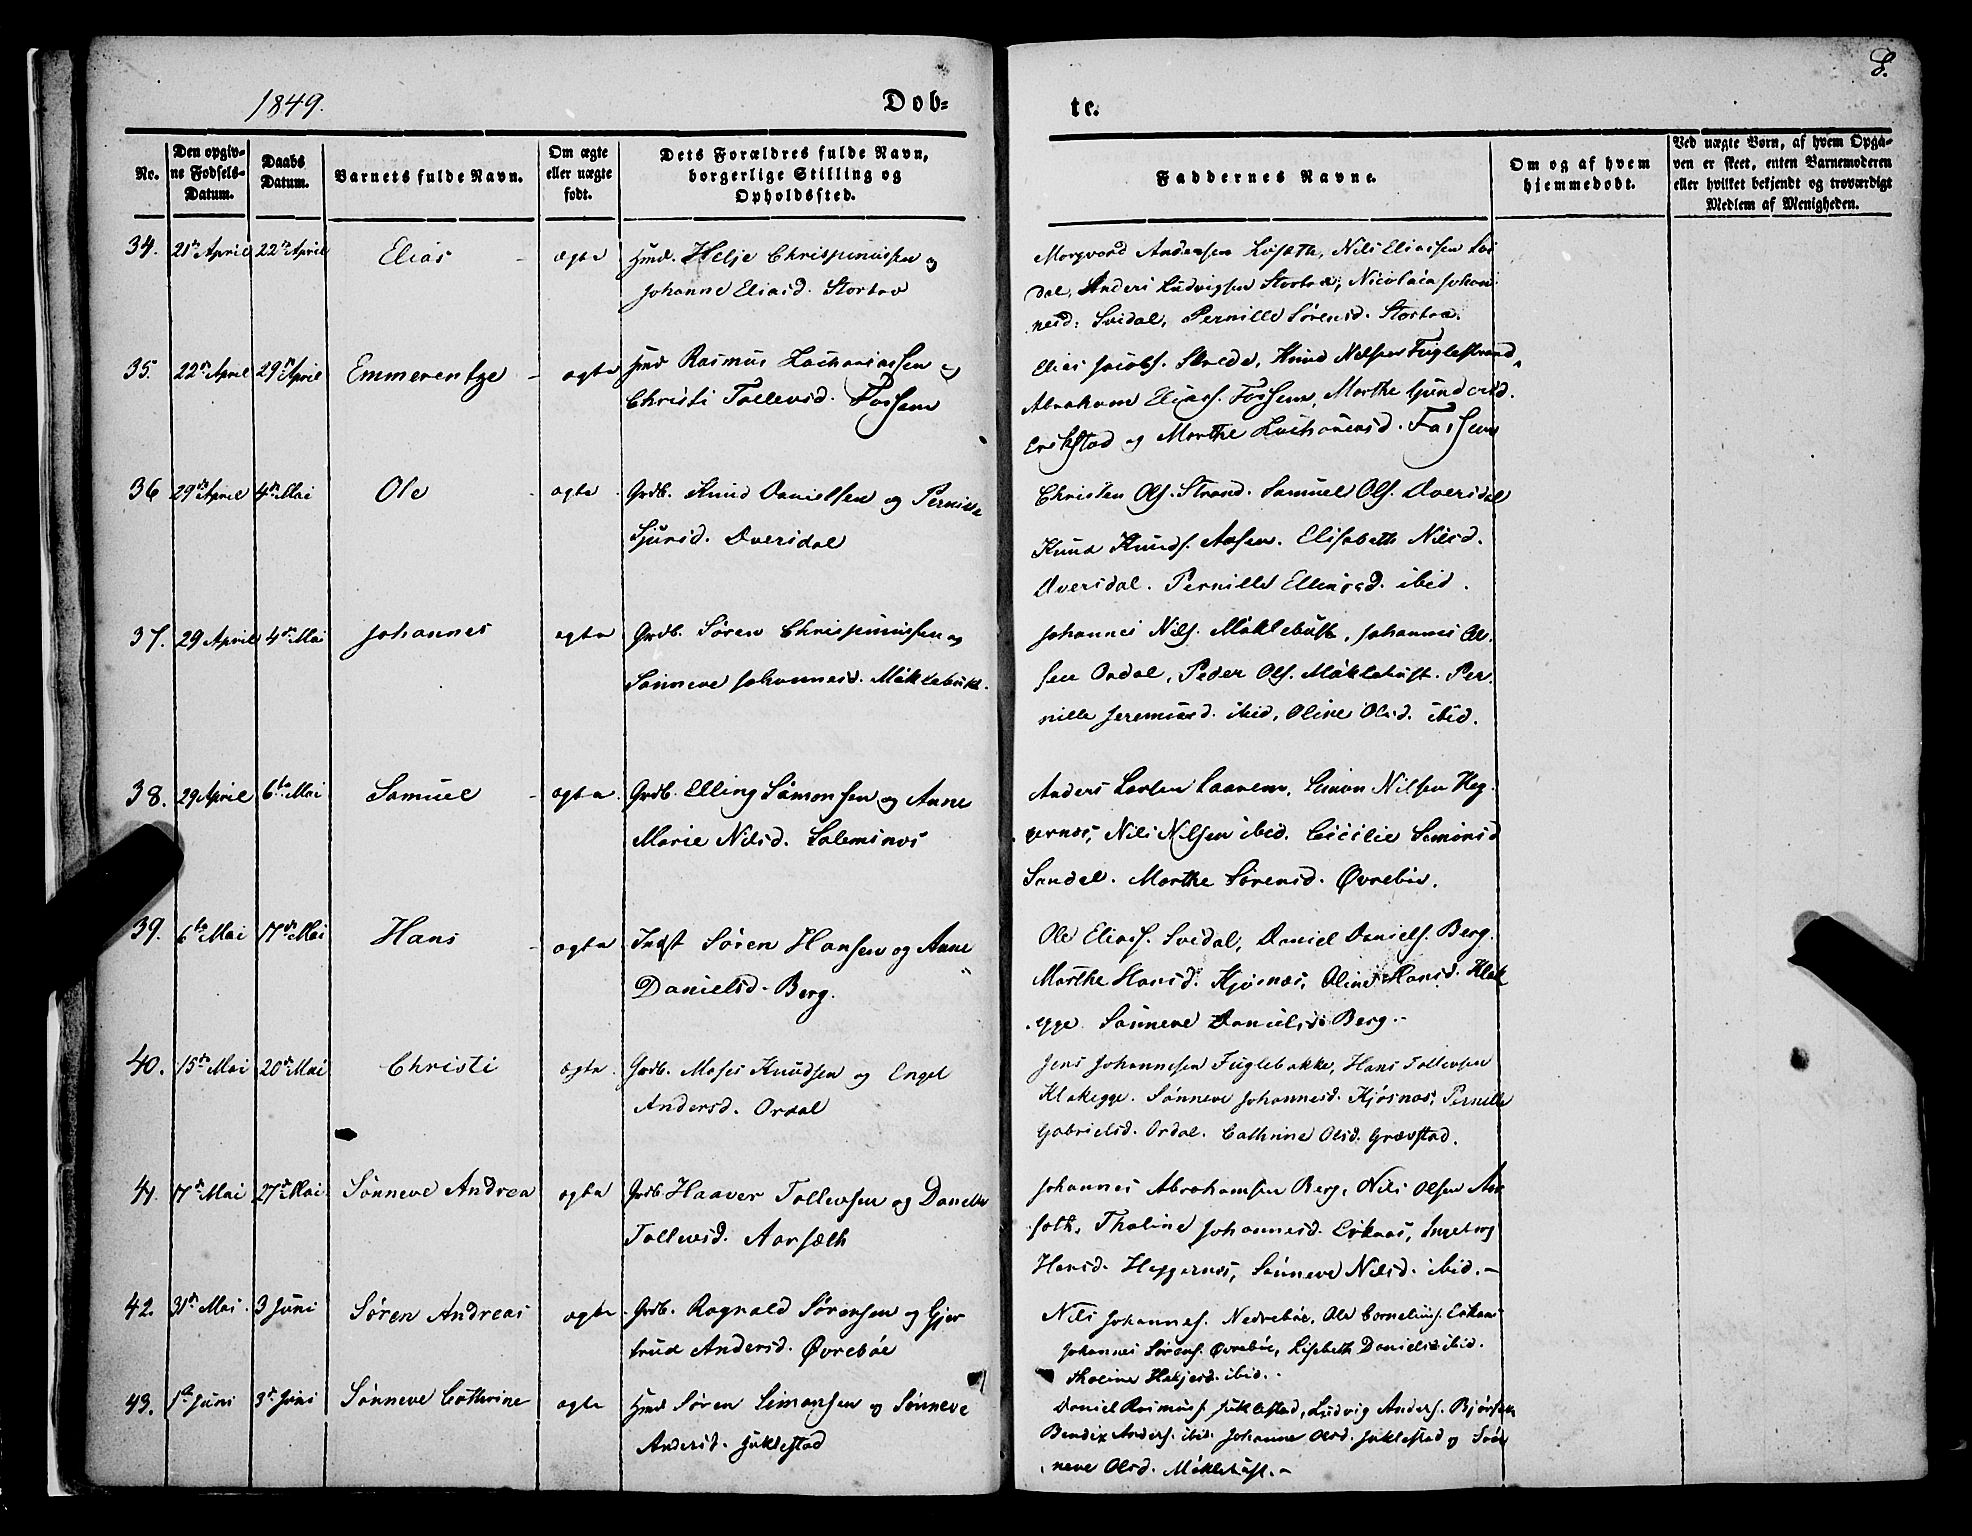 1849.
Dob=
te.
8.
No.
Den opgiv=
ne Fødsels=
Datum.
Daabs
Datum.
Barnets fulde Navn.
Om ægte
eller uægte
født.
Dets Forældres fulde Navn,
borgerlige Stilling og
Opholdssted.
Faddernes Navne.
Om og af hvem
hjemmedøbt.
Ved uægte Børn, af hvem Opga=
ven er skeet, enten Barnemoderen
eller hvilket bekjendt og troværdigt
Medlem af Menigheden.
34. 21de April 22de April Elias - ægte
Hmd. Helje Chrispinussen og
Johanne Eliasd. Stortao
Andersen Nils Eliassen Svi
dal, Anders Ludvigsen Nicolaia Johan
nesd: Svidal, Pernille Sørensd.
35. 22de April 29de April Emmerentze - ægte
Hmd Rasmus Zachariassen og
Christi Tollevsd. Fossem
Elias Jacobs. Skrede, Knud Nilsen Fuglestrand
Abraham Eliass. Fossem, Marthe
og Marthe Zachariasd. Fossem
36 29de April 4de Mai Ole - ægte
Grdb. Knud Danielsen og Pernille
Sjursd. Dversdal
Christen Ols. Strand. Samuel Ols. Dversdal
Knud Knuds. Aasen. Elisabeth Nilsd.
Dversdal. Pernille ibid.
37. 29 April 4de Mai Johannes ægte
Grdb. Søren Chrispinussen og
Sønneve Johannesd. Møklebust.
Johannes Nils. Møklebust, Johannes Ol-
sen Ordal, Peder Ols. Møklebust. Per-
nille Jeremiasd. ibid, Oline Olsd. ibid.
38. 29 April 6te Mai Samuel - ægte
Grdb. Elling Simonsen og Anne
Marie Nilsd. Solemsnæs
Anders Larsen Simon Nilsen Heg-
gernæs, Nils Nilsen ibid. Cicilie Simonsd
Sandal. Marthe Sørensd. Øvrebø.
39. 6te Mai 17de Mai Hans - ægte
Indst Søren Hansen og Anne
Danielsd. Berg.
Ole Eliass. Svidal, Daniel Daniels. Berg.
Marthe Hansd. Kjøsnæs, Oline Hansd. Klak
egge. Sønneve Danielsd. Berg.-
40. 15de Mai 20de Mai Christi ægte
Grdb. Moses Knudsen og Engel
Andersd. Ordal
Jens Johannesen Fuglebakke, Hans Tollevsen
Klakegge. Sønneve Johannesd. Kjøsnæs, Pernille
Gabrielsd. Ordal. Cathrine Olsd. Grævstad.
41. 17de Mai 27de Mai Sønneve Andrea ægte
Grdb. Haaver Tollevsen og Danelle
Tollevsd. Aarsæth
Johannes Abrahamsen Berg, Nils Olsen Aar
sæth, Thaline Johannesd. Eikaas, Ingeborg
Hansd. Heggernæs, Sønneve Nilsd. ibid.-
42. 31de Mai. 3 Juni Søren Andreas ægte
Grdb. Ragnald Sørensen og Gjer
trud Andersd. Øvrebøe
Nils Johannes. Nedrebøe, Ole Cornelius. Eikaas
Johannes Sørens. Øvrebøe, Lisabeth Danielsd ibid.
Thaline Heljesd. ibid.-
43. 1ste Juni 3de Juni Sønneve Cathrine ægte
Hmd Søren Simonsen og Sønneve
Andersd. Juklestad
Daniel Rasmuss Juklestad, Ludvig Anders.
Bendix Anders. ibid. Johanne Olsd. Juklestad og Søn
neve Olsd. Møklebust.-